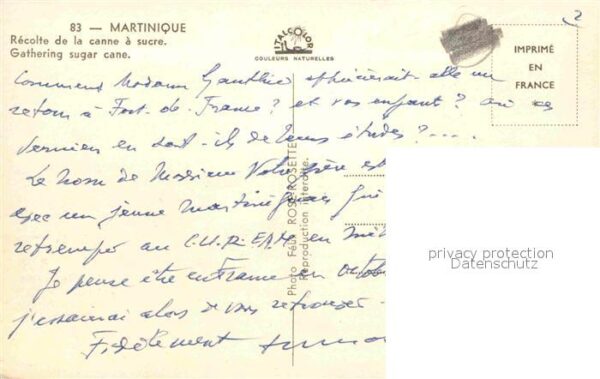 83 — MARTINIQUE
Récolte de la canne à sucre.
Gathering sugar cane.
ITALCOLOR
COULEURS NATURELLES
2
IMPRIMÉ
EN
FRANCE
Comment Madame Gauthier apprécierait-elle un
retour à Fort-de-France? et vos enfants? où ces
derniers en sont-ils de leurs études?....
Le nom de Monsieur Votre père est
avec un jeune martiniquais
au C.U.R.E.A.M. en
Je pense être en France en octobre
j'essaierai alors de vous
Fidèlement
Photo Féli ROSE-ROSETTE
Reproduction interdite.
privacy protection
Datenschutz